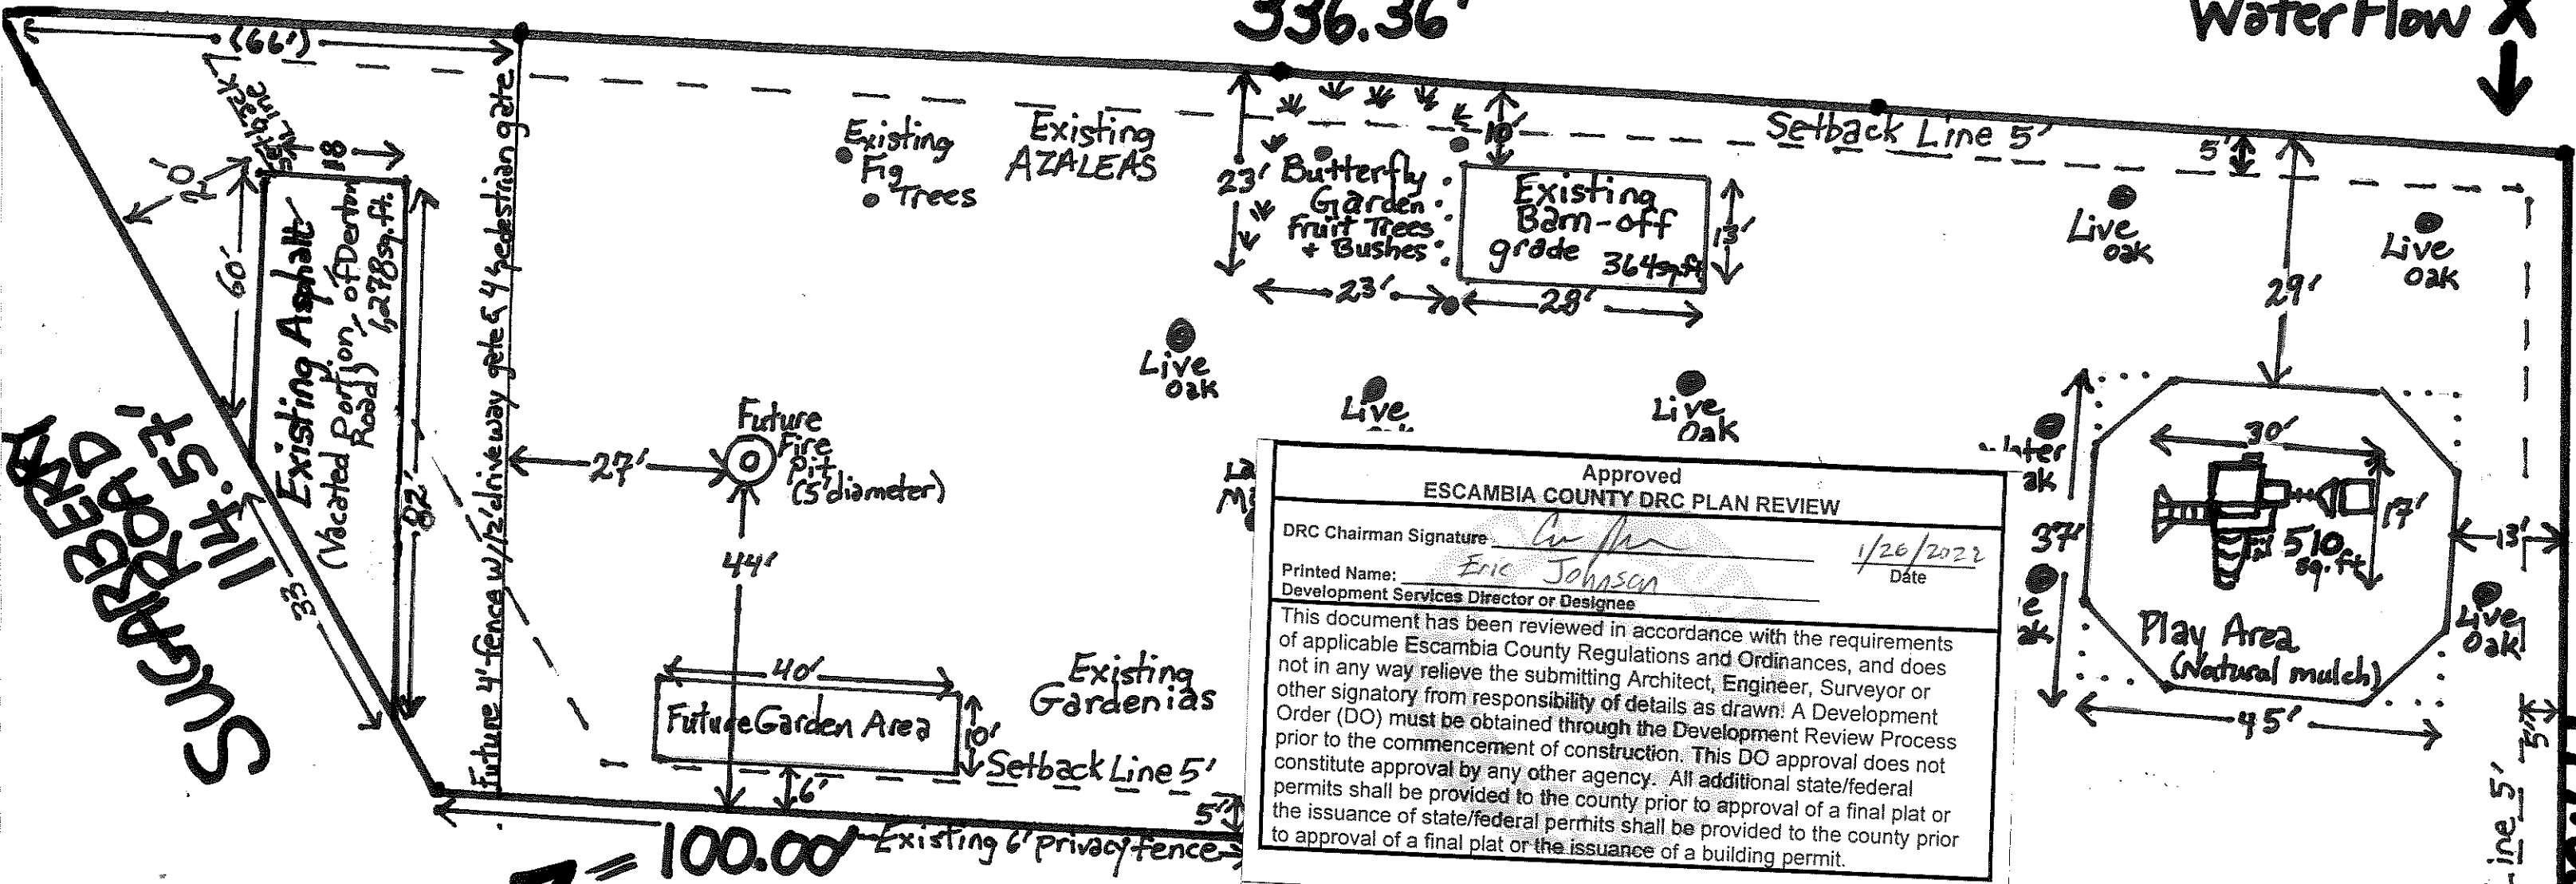 336.36'
Water Flow X
(66')
Setback
Line
20'
18
60'
Existing Asphalt
(Vacated Portion of Derton
Road) 1,278sq.ft.
82'
33
SUGARBERRY
ROAD
114.57'
Future 4' fence w/12' driveway gate & 4' pedestrian gate
Existing
Fig
Trees
Existing
AZALEAS
23'
Butterfly
Garden
Fruit Trees
+ Bushes
23'
10'
Existing
Barn-off
grade 364sq.ft
13'
28'
Setback Line 5'
5'
Live
oak
Live
oak
29'
Live
oak
Live
Live
oak
27'
Future
Fire
Pit
(5' diameter)
44'
40'
Future Garden Area
10'
6'
Existing
Gardenias
Setback Line 5'
5'
100.00'
Existing 6' privacy fence
Approved
ESCAMBIA COUNTY DRC PLAN REVIEW
DRC Chairman Signature
1/26/2022
Date
Printed Name: Eric Johnson
Development Services Director or Designee
This document has been reviewed in accordance with the requirements
of applicable Escambia County Regulations and Ordinances, and does
not in any way relieve the submitting Architect, Engineer, Surveyor or
other signatory from responsibility of details as drawn. A Development
Order (DO) must be obtained through the Development Review Process
prior to the commencement of construction. This DO approval does not
constitute approval by any other agency. All additional state/federal
permits shall be provided to the county prior to approval of a final plat or
the issuance of state/federal permits shall be provided to the county prior
to approval of a final plat or the issuance of a building permit.
37'
30'
17'
510
sq. ft
Play Area
(Natural mulch)
45'
13'
Live
oak
5'
ine 5'